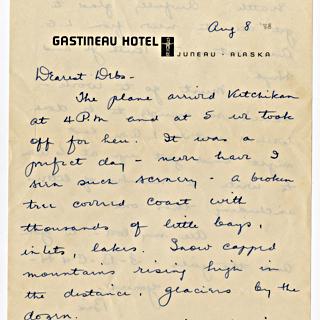 Aug 8 '38
GASTINEAU HOTEL
JUNEAU - ALASKA
Dearest Debs -
The plane arrived Ketchikan
at 4 P.M and at 5 we took
off for here. It was a
perfect day - never have I
seen such scenery - a broken
tree covered coast with
thousands of little bays,
inlets, lakes. Snow capped
mountains rising high in
the distance, glaciers by the
dozen.